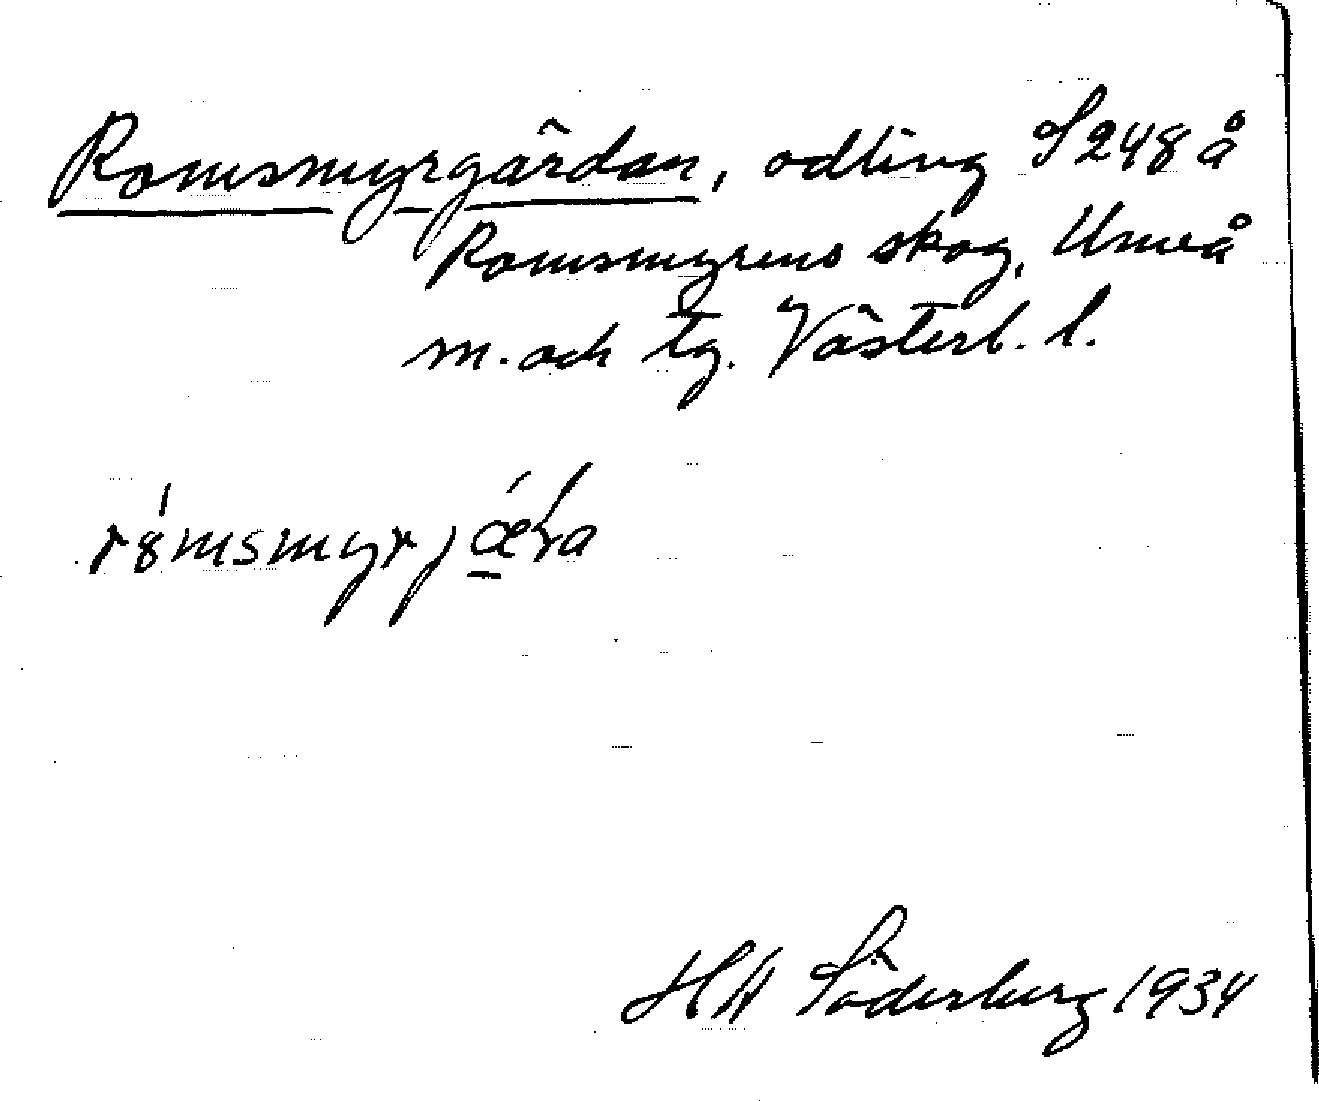 Romsmyrgärdan, odling S 248 å
Romsmyrens skog, Umeå
m. och tg. Västerb. l.
HA Söderberg 1934